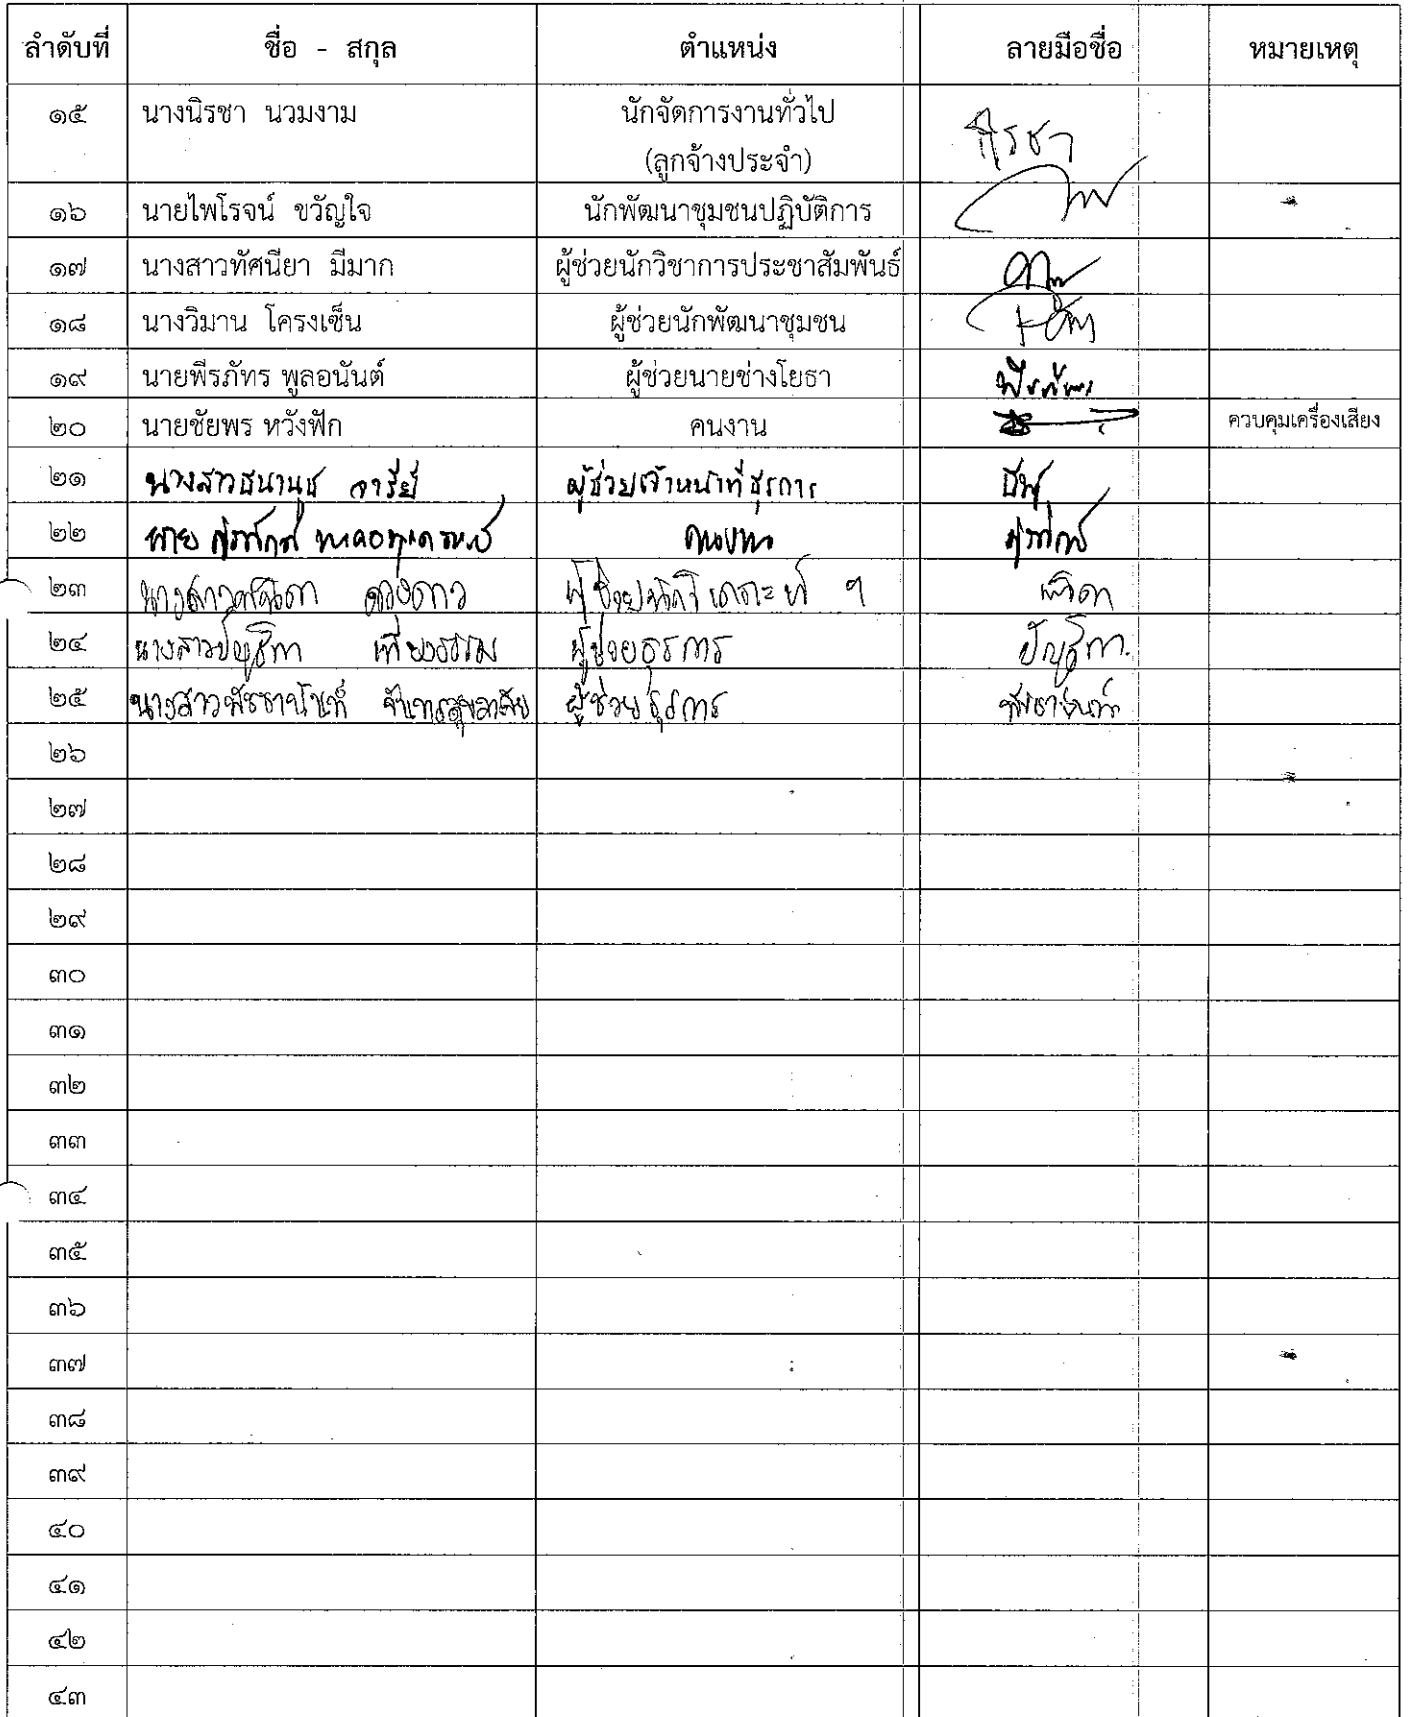 ลำดับที่ ชื่อ - สกุล ตำแหน่ง ลายมือชื่อ หมายเหตุ
๑๕ นางนิรชา นวมงาม นักจัดการงานทั่วไป
(ลูกจ้างประจำ) นิรชา
๑๖ นายไพโรจน์ ขวัญใจ นักพัฒนาชุมชนปฏิบัติการ
๑๗ นางสาวทัศนียา มีมาก ผู้ช่วยนักวิชาการประชาสัมพันธ์
๑๘ นางวิมาน โครงเซ็น ผู้ช่วยนักพัฒนาชุมชน
๑๙ นายพีรภัทร พูลอนันต์ ผู้ช่วยนายช่างโยธา พีรภัทร
๒๐ นายชัยพร หวังฟัก คนงาน ควบคุมเครื่องเสียง
๒๑ นางสาวธนานุช อารีย์ ผู้ช่วยเจ้าหน้าที่ธุรการ
๒๒ นาย คนงาน
๒๓ นางสาว ดวงดาว ผู้ช่วยนักวิเคราะห์ ฯ
๒๔ นางสาวปัญฐิตา เที่ยงธรรม ผู้ช่วยธุรการ ปัญฐิตา
๒๕ นางสาวพัชชานันท์ ผู้ช่วยธุรการ พัชชานันท์
๒๖
๒๗
๒๘
๒๙
๓๐
๓๑
๓๒
๓๓
๓๔
๓๕
๓๖
๓๗
๓๘
๓๙
๔๐
๔๑
๔๒
๔๓